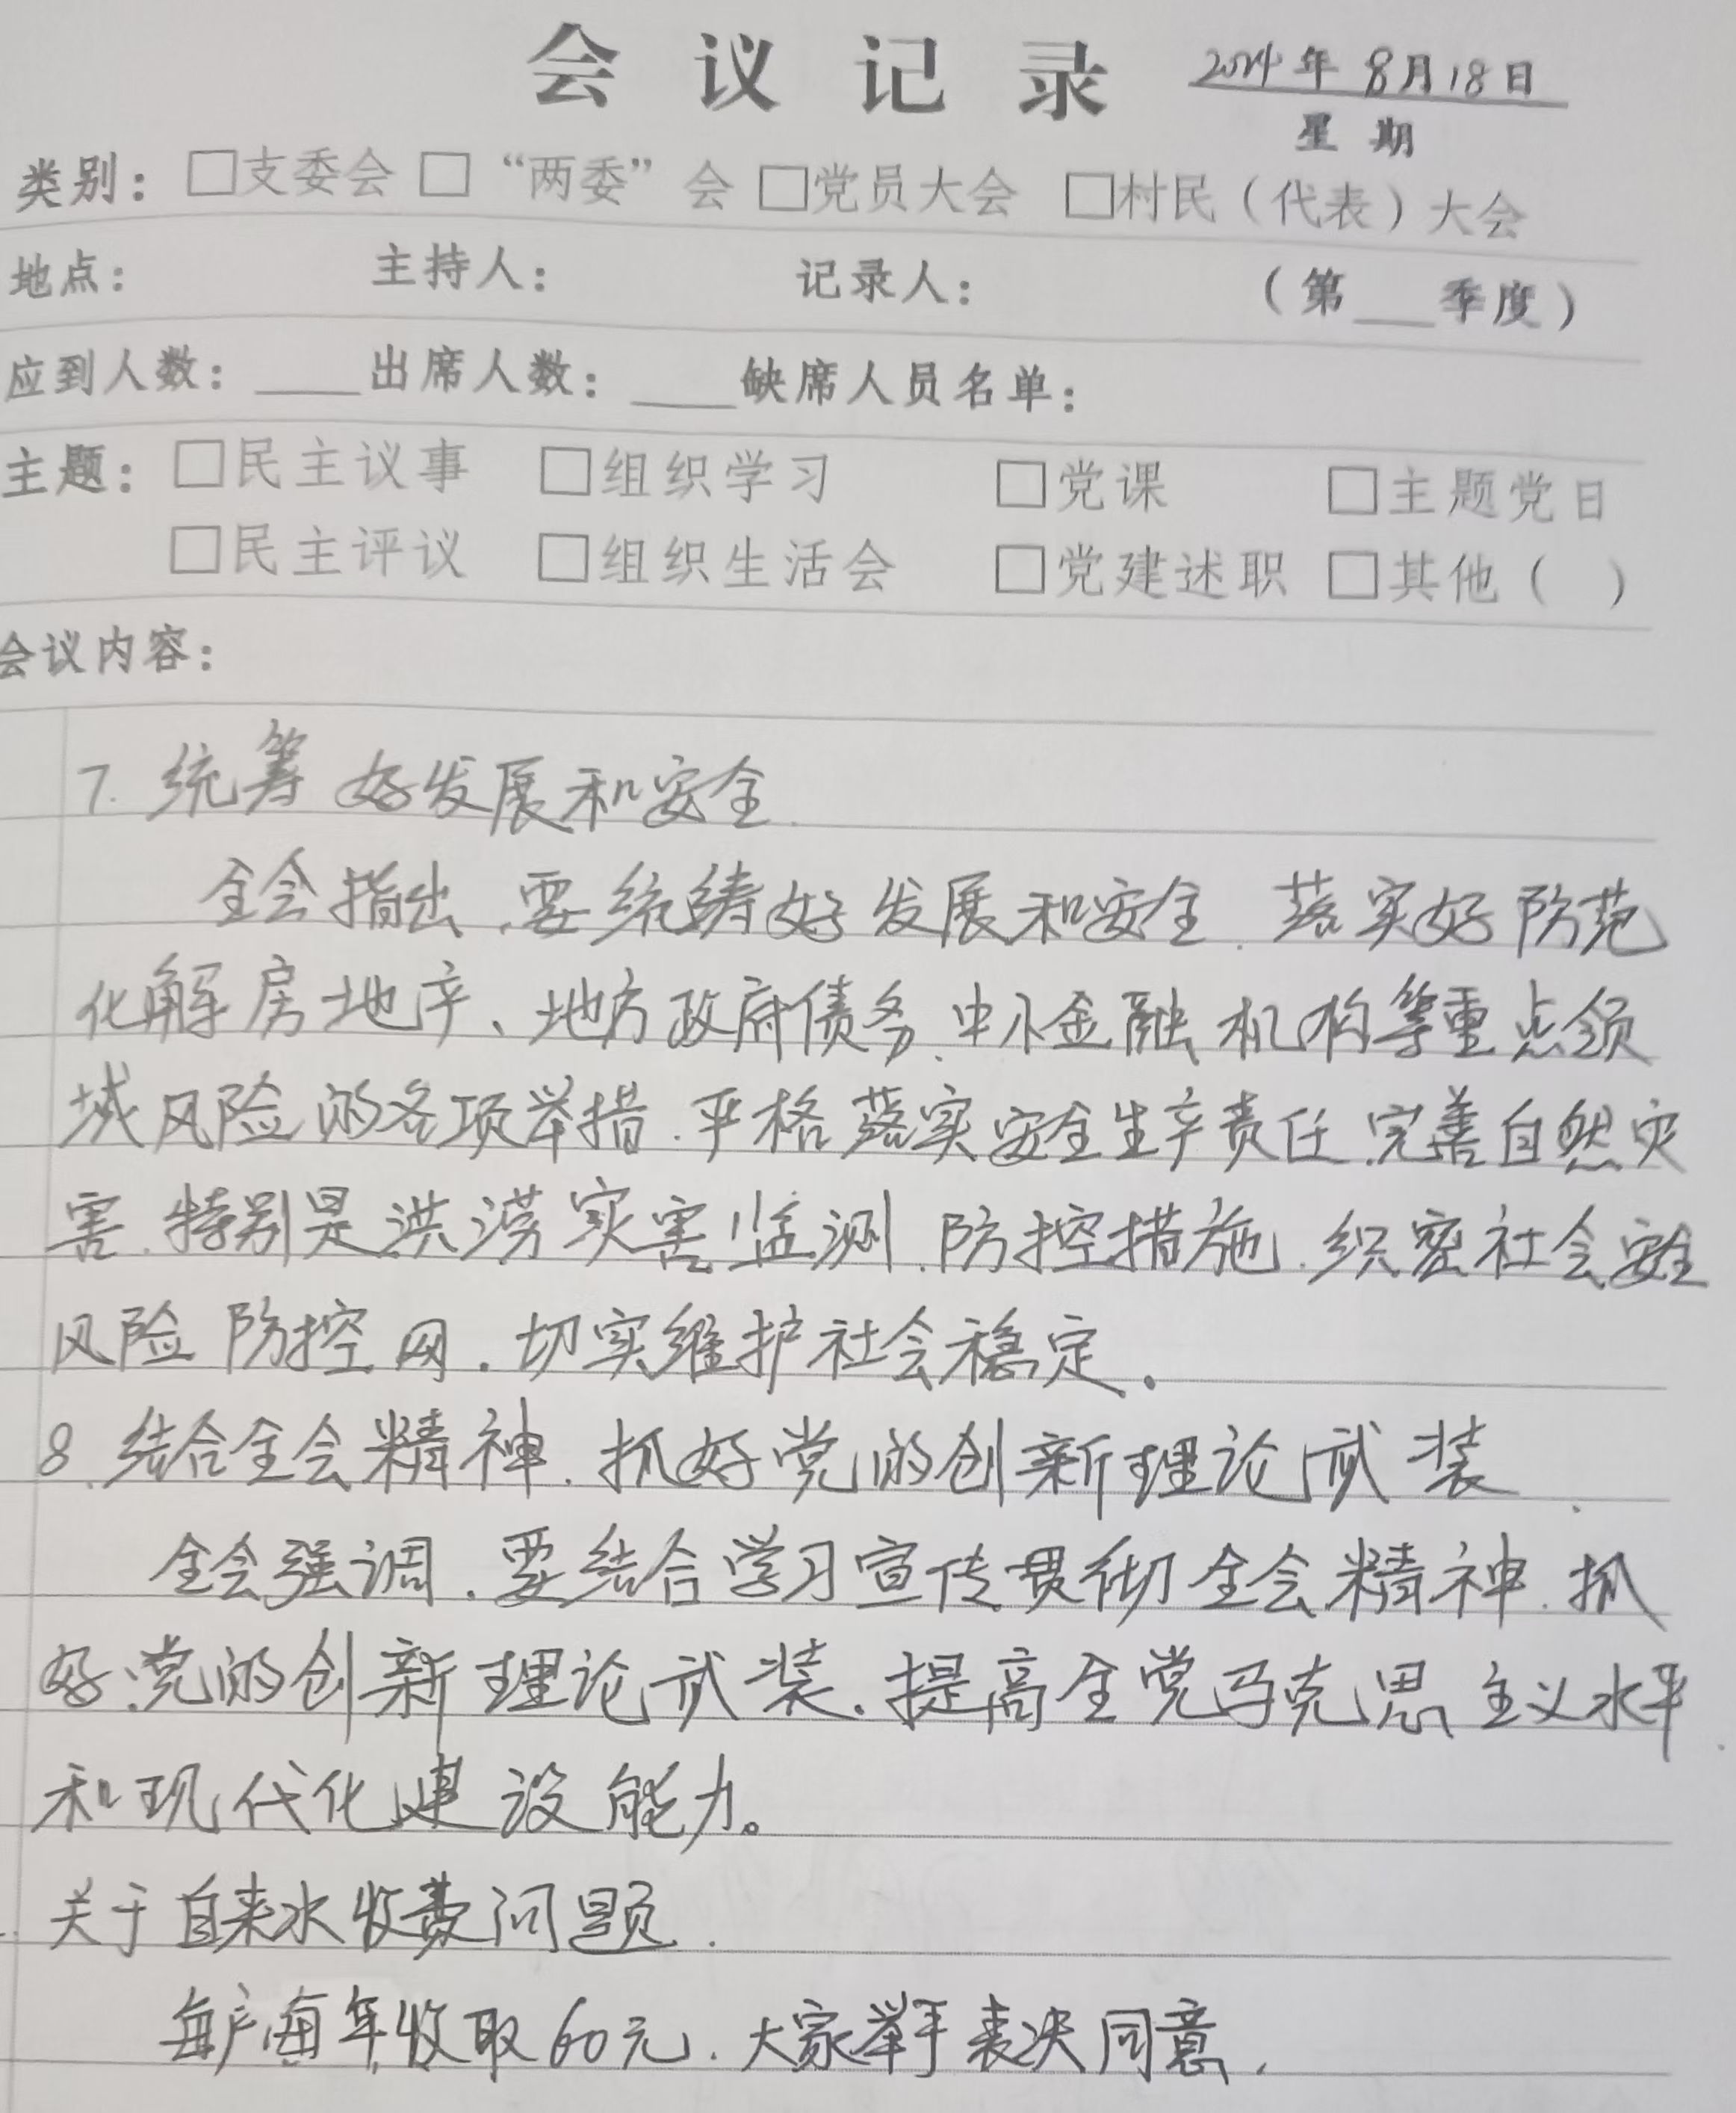 会议记录
2024年8月18日
星期
类别：□支委会 □“两委”会 □党员大会 □村民（代表）大会
地点： 主持人： 记录人： （第___季度）
应到人数：____出席人数：____缺席人员名单：
主题：□民主议事 □组织学习 □党课 □主题党日
□民主评议 □组织生活会 □党建述职 □其他（ ）
会议内容：
7. 统筹好发展和安全.
全会指出，要统筹好发展和安全，落实好防范
化解房地产、地方政府债务、中小金融机构等重点领
域风险的各项举措，严格落实安全生产责任，完善自然灾
害，特别是洪涝灾害监测，防控措施，织密社会安全
风险防控网，切实维护社会稳定。
8. 结合全会精神，抓好党的创新理论武装.
全会强调，要结合学习宣传贯彻全会精神，抓
好党的创新理论武装，提高全党马克思主义水平
和现代化建设能力。
关于自来水收费问题.
每户每年收取60元，大家举手表决同意.